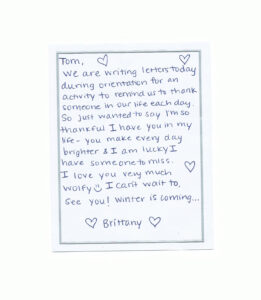 Tom,
We are writing letters today
during orientation for an
activity to remind us to thank
someone in our life each day.
So just wanted to say I'm so
thankful I have you in my
life- you make every day
brighter & I am lucky I
have someone to miss.
I love you very much
wolfy I can't wait to,
see you! Winter is coming...
Brittany